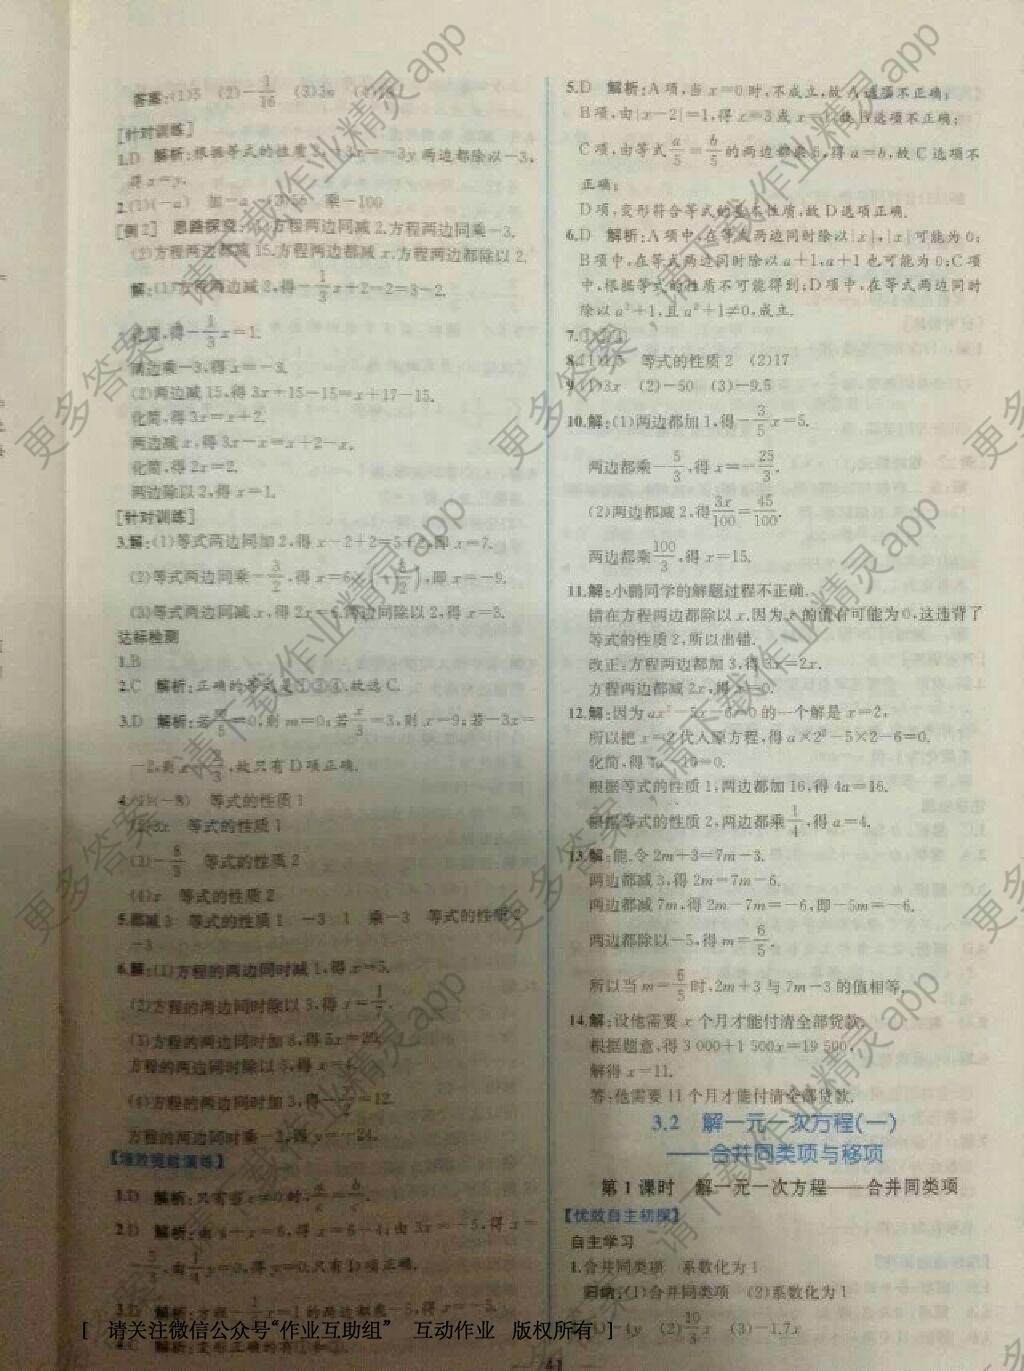 答案:(1)5 (2)-1/16 (3)3n
[针对训练]
1.D 解析:根据等式的性质2,-3x=-3y两边都除以-3,
得x=y.
2.(1)(-a) 加-a (3)5b 乘-100
[例2] 思路探究:(1)方程两边同减2,方程两边同乘-3.
(2)方程两边都减15,方程两边都减x,方程两边都除以2.
解:(1)方程两边减2,得-1/3x+2-2=3-2.
化简,得-1/3x=1.
两边乘-3,得x=-3.
(2)两边减15,得3x+15-15=x+17-15.
化简,得3x=x+2.
两边减x,得3x-x=x+2-x.
化简,得2x=2.
两边除以2,得x=1.
[针对训练]
3.解:(1)等式两边同加2,得x-2+2=5+2,即x=7.
(2)等式两边同乘-3/2,得x=6×(-3/2),即x=-9.
(3)等式两边同减x,得2x=6,两边同除以2,得x=3.
达标检测
1.B
2.C 解析:正确的等式是①③④.故选C.
3.D 解析:若m/5=0,则m=0;若x/3=3,则x=9;若-3x=
-2,则x=2/3,故只有D项正确.
4.(1)(-3) 等式的性质1
(2)3x 等式的性质1
(3)- 等式的性质2
(4)x 等式的性质2
5.都减3 等式的性质1 -3 1 乘-3 等式的性质2
-3
6.解:(1)方程的两边同时减1,得x=5.
(2)方程的两边同时除以3,得x=1/7.
(3)方程的两边同时加8,得5x=20,
方程的两边同时除以5,得x=4.
(4)方程的两边同时加3,得-y/2=12.
方程的两边同时乘-2,即y=-24.
1.D 解析:只有当
2.D 解析:由x-x=6,得x=6-4;由3x=-5,得x=
只有D项正确.
3.D 解析:方程-1/3x=1的两边都乘-3,得x=-3.
5.D 解析:A项,当x=0时,不成立,故A选项不正确;
B项,由|x-2|=1,得x=3或x=1,故B选项不正确;
C项,由等式a/5=b/5的两边都乘5,得a=b,故C选项不
正确;
D项,变形符合等式的基本性质,故D选项正确.
6.D 解析:A项中,在等式两边同时除以|x|,|x|可能为0;
B项中,在等式两边同时除以a+1,a+1也可能为0;C项
中,根据等式的性质不可能得到;D项中,在等式两边同时
除以a²+1,且a²+1≠0,成立.
7.①③④
8.(1)1.5 等式的性质2 (2)17
9.(1)3x (2)-50 (3)-9.5
10.解:(1)两边都加1,得-3/5x=5.
两边都乘-5/3,得x=-25/3.
(2)两边都减2,得3x/100=45/100.
两边都乘100/3,得x=15.
11.解:小鹏同学的解题过程不正确.
错在方程两边都除以x.因为x的值有可能为0,这违背了
等式的性质2,所以出错.
改正:方程两边都加3,得3x=2x.
方程两边都减2x,得x=0.
12.解:因为ax²-5x-6=0的一个解是x=2,
所以把x=2代入原方程,得a×2²-5×2-6=0.
化简,得4a-16=0.
根据等式的性质1,两边都加16,得4a=16.
根据等式的性质2,两边都乘1/4,得a=4.
13.解:能.令2m+3=7m-3.
两边都减3,得2m=7m-6.
两边都减7m,得2m-7m=-6,即-5m=-6.
两边都除以-5,得m=6/5.
所以当m=6/5时,2m+3与7m-3的值相等.
14.解:设他需要x个月才能付清全部贷款.
根据题意,得3 000+1 500x=19 500,
解得x=11.
答:他需要11个月才能付清全部贷款.
3.2 解一元一次方程(一)
——合并同类项与移项
第1课时 解一元一次方程——合并同类项
【优效自主初探】
自主学习
1.合并同类项 系数化为1
归纳:(1)合并同类项 (2)系数化为1
(1)-4y (2)10/3x (3)-1.7x
[ 请关注微信公众号“作业互助组” 互动作业 版权所有 ]
41
更多答案,请下载作业精灵app
更多答案,请下载作业精灵app
更多答案,请下载作业精灵app
更多答案,请下载作业精灵app